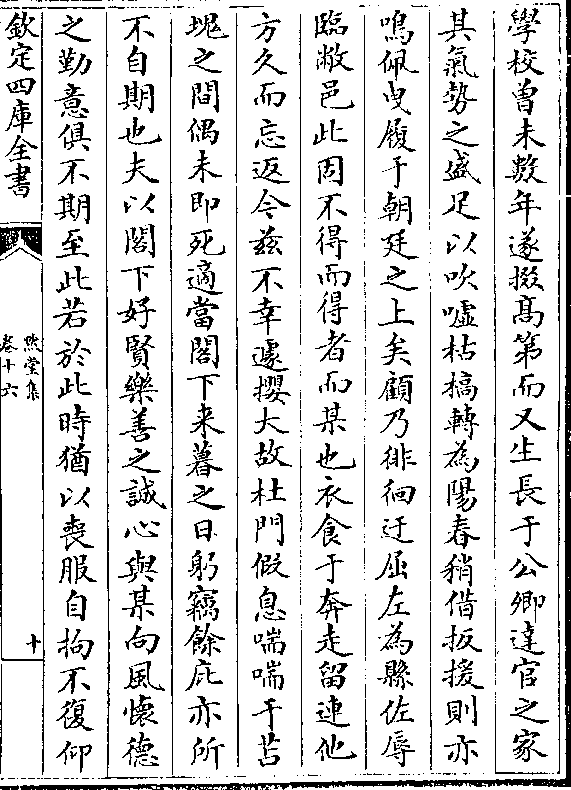 學校曾未數年遂掇髙第而又生長于公卿達官之家
其氣勢之盛足以吹噓枯槁轉為陽春稍借扳援則亦
鳴佩曵履于朝廷之上矣顧乃徘徊迂屈左為縣佐辱
臨敝邑此固不得而得者而某也衣食于奔走留連他
方久而忘返今兹不幸遽攖大故杜門假息喘喘于苫
塊之間偶未即死適當閣下来暮之日躬竊餘庇亦所
不自期也夫以閣下好賢樂善之誠心與某向風懐德
之勤意俱不期至此若於此時猶以喪服自拘不復仰
欽定四庫全書
㸃堂集
卷十六
十